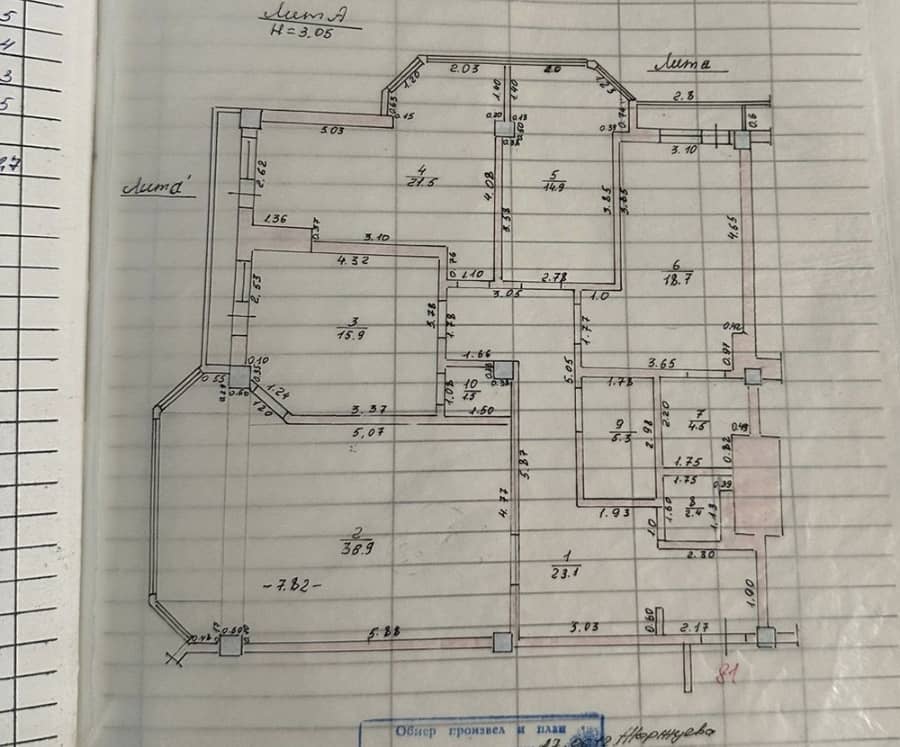 5
4
3
5
2,7
Лит А
H=3.05
Лит а
Лит а'
2.03
2.0
1.20
1.23
0.63
0.15
1.40
1.40
2.8
0.6
3.03
3.10
2.62
4
21.5
5
14.9
4.08
3.53
3.85
3.85
4.65
1.36
0.37
3.10
4.32
6
18.7
1.10
2.78
3.05
1.0
2.53
3
15.9
3.78
1.78
1.77
0.42
0.97
1.66
5.05
3.65
0.10
0.55
0.35
1.24
1.20
0.60
3.37
5,07
1.08
10
1.5
1.50
1.78
9
5.3
2.98
2.20
7
4.5
0.49
0.82
1.75
1.75
0.39
5.87
4.77
1.93
1.60
8
2.4
1.13
1.0
2.80
2
38.9
-7.82-
1
23.1
1.90
5.88
5.03
0.60
2.17
81
Обмер произвел и план
Жоржиева